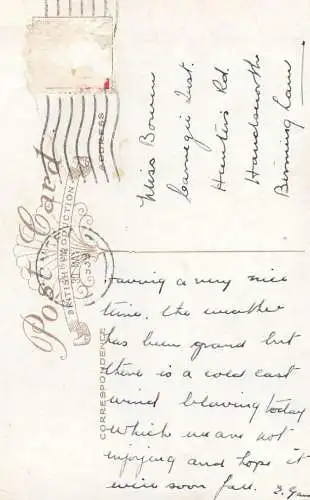 Post Card
BRITISH PRODUCTION
CORRESPONDENCE
ADDRESS
Miss Bowen
Carnegie Inst.
Hunters Rd.
Handsworth
Birmingham
Having a very nice
time. The weather
has been grand but
there is a cold east
wind blowing today
which we are not
enjoying and hope it
will soon fall.